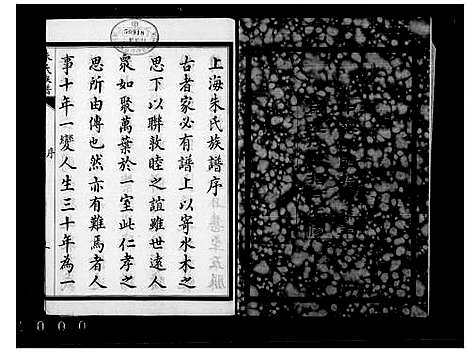 上海朱氏族譜序
古者家必有譜上以寄水木之
思下以聯敦睦之誼雖世遠人
眾如聚萬葉於一室此仁孝之
思所由傳也然亦有難焉者人
事十年一變人生三十年為一
朱氏族譜
序
50918
000